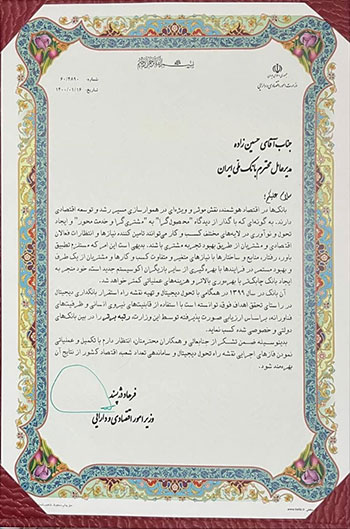 بسم الله الرحمن الرحیم
جمهوری اسلامی ایران
وزارت امور اقتصادی و دارایی
شماره ۶۰/۴۸۹۰
تاریخ ۱۴۰۰/۰۱/۱۶
جناب آقای حسین زاده
مدیرعامل محترم بانک ملی ایران
سلام علیکم؛
بانک‌ها در اقتصاد هوشمند، نقش موثر و ویژه‌ای در هموارسازی مسیر رشد و توسعه اقتصادی
دارند. به گونه‌ای که با گذار از دیدگاه "محصول‌گرا" به "مشتری‌گرا و خدمت محور" و ایجاد
تحول و نوآوری در لایه‌های مختلف کسب و کار می‌توانند تامین کننده نیازها و انتظارات فعالان
اقتصادی و مشتریان از طریق بهبود تجربه مشتری باشند. بدیهی است این امر که مستلزم تطبیق
باور، رفتار، منابع و ساختارها با نیازهای متغیر و متفاوت کسب و کارها و مشتریان از یک طرف
و بهبود مستمر در فرآیندها با بهره‌گیری از سایر بازیگران اکوسیستم جدید است، خود منجر به
ایجاد بانک چابک‌تر با بهره‌وری بالاتر و هزینه‌های عملیاتی کمتر خواهد شد.
آن بانک در سال ۱۳۹۹ در همگامی با تحول دیجیتال و تهیه نقشه راه استقرار بانکداری دیجیتال
در راستای تحقق اهداف فوق، توانسته است با استفاده از قابلیت‌های نیروی انسانی و ظرفیت‌های
فناورانه، براساس ارزیابی صورت پذیرفته توسط این وزارت، رتبه برتر را در بین بانک‌های
دولتی و خصوصی شده کسب نماید.
بدینوسیله ضمن تشکر از جنابعالی و همکاران محترمتان، انتظار دارم با تکمیل و عملیاتی
نمودن فازهای اجرایی نقشه راه تحول دیجیتال و ساماندهی تعداد شعب، اقتصاد کشور از نتایج آن
بهره‌مند شود.
فرهاد دژپسند
وزیر امور اقتصادی و دارایی